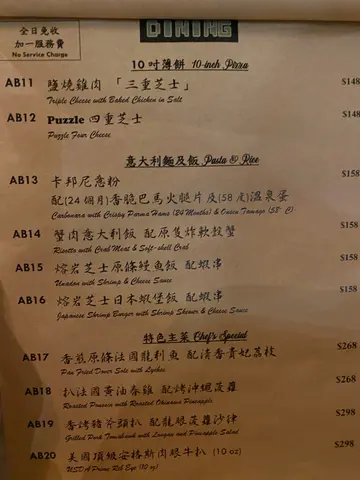 全日免收
加一服務費
No Service Charge
DINING
10吋薄餅 10-inch Pizza
AB11 鹽燒雞肉 「三重芝士」 $148
Triple Cheese with Baked Chicken in Salt
AB12 Puzzle 四重芝士 $148
Puzzle Four Cheese
意大利麵及飯 Pasta & Rice
AB13 卡邦尼意粉 $158
配(24個月)香脆巴馬火腿片及(58度)溫泉蛋
Carbonara with Crispy Parma Ham (24 Months) & Onsen Tamago (58° C)
AB14 蟹肉意大利飯 配原隻炸軟殼蟹 $158
Risotto with Crab Meat & Soft-shell Crab
AB15 熔岩芝士原條鰻魚飯 配蝦串 $158
Unadon with Shrimp & Cheese Sauce
AB16 熔岩芝士日本蝦堡飯 配蝦串 $158
Japanese Shrimp Burger with Shrimp Skewer & Cheese Sauce
特色主菜 Chef's Special
AB17 香煎原條法國龍利魚 配清香貴妃荔枝 $268
Pan Fried Dover Sole with Lychee
AB18 扒法國黃油春雞 配烤沖繩菠蘿 $268
Roasted Poussin with Roasted Okinawa Pineapple
AB19 香烤豬斧頭扒 配龍眼菠蘿沙律 $298
Grilled Pork Tomahawk with Longan and Pineapple Salad
AB20 美國頂級安格斯肉眼牛扒 (10 oz) $298
USDA Prime Rib Eye (10 oz)